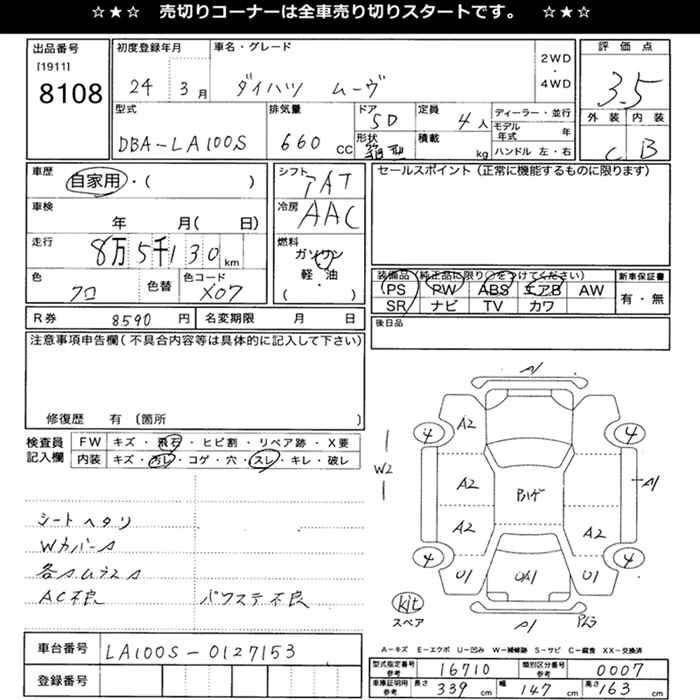 ☆★☆ 売切りコーナーは全車売り切りスタートです。 ☆★☆
出品番号
[1911]
8108
初度登録年月
24 3月
車名・グレード
ダイハツ ムーヴ
2WD
4WD
評価点
3.5
外装 内装
C B
型式
DBA-LA100S
排気量
660 CC
ドア
5D
形状
箱型
定員
4人
積載
kg
ディーラー・並行
モデル年式 年
ハンドル 左・右
車歴
自家用・( )
車検
年 月( 日)
走行
8万5千130km
色
クロ
色替
色コード
X07
シフト
IAT
冷房
AAC
燃料
ガソリン
軽・油
( )
セールスポイント(正常に機能するものに限ります)
装備品(純正品に限り○をつけてください)
PS PW ABS エアB AW
SR ナビ TV カワ
新車保証書
有・無
R券 8590円
名変期限 月 日
後日品
注意事項申告欄(不具合内容等は具体的に記入して下さい)
修復歴 有 〔箇所 〕
検査員記入欄
FW キズ・飛石・ヒビ割・リペア跡・X要
内装 キズ・汚レ・コゲ・穴・スレ・キレ・破レ
シートヘタリ
WカバーA
AC不良 パワステ不良
A1
4 A2 4
W2
A2 Pハゲ A1
A2 A2
4 4
U1 U1
kit
スペア
P1
A-キズ E-エクボ U-凹み W-補修跡 S-サビ C-腐食 XX-交換済
車台番号 LA100S-0127153
登録番号
型式指定番号参考 16710
類別区分番号参考 0007
車庫証明用参考 長さ 339cm 幅 147cm 高さ 163cm